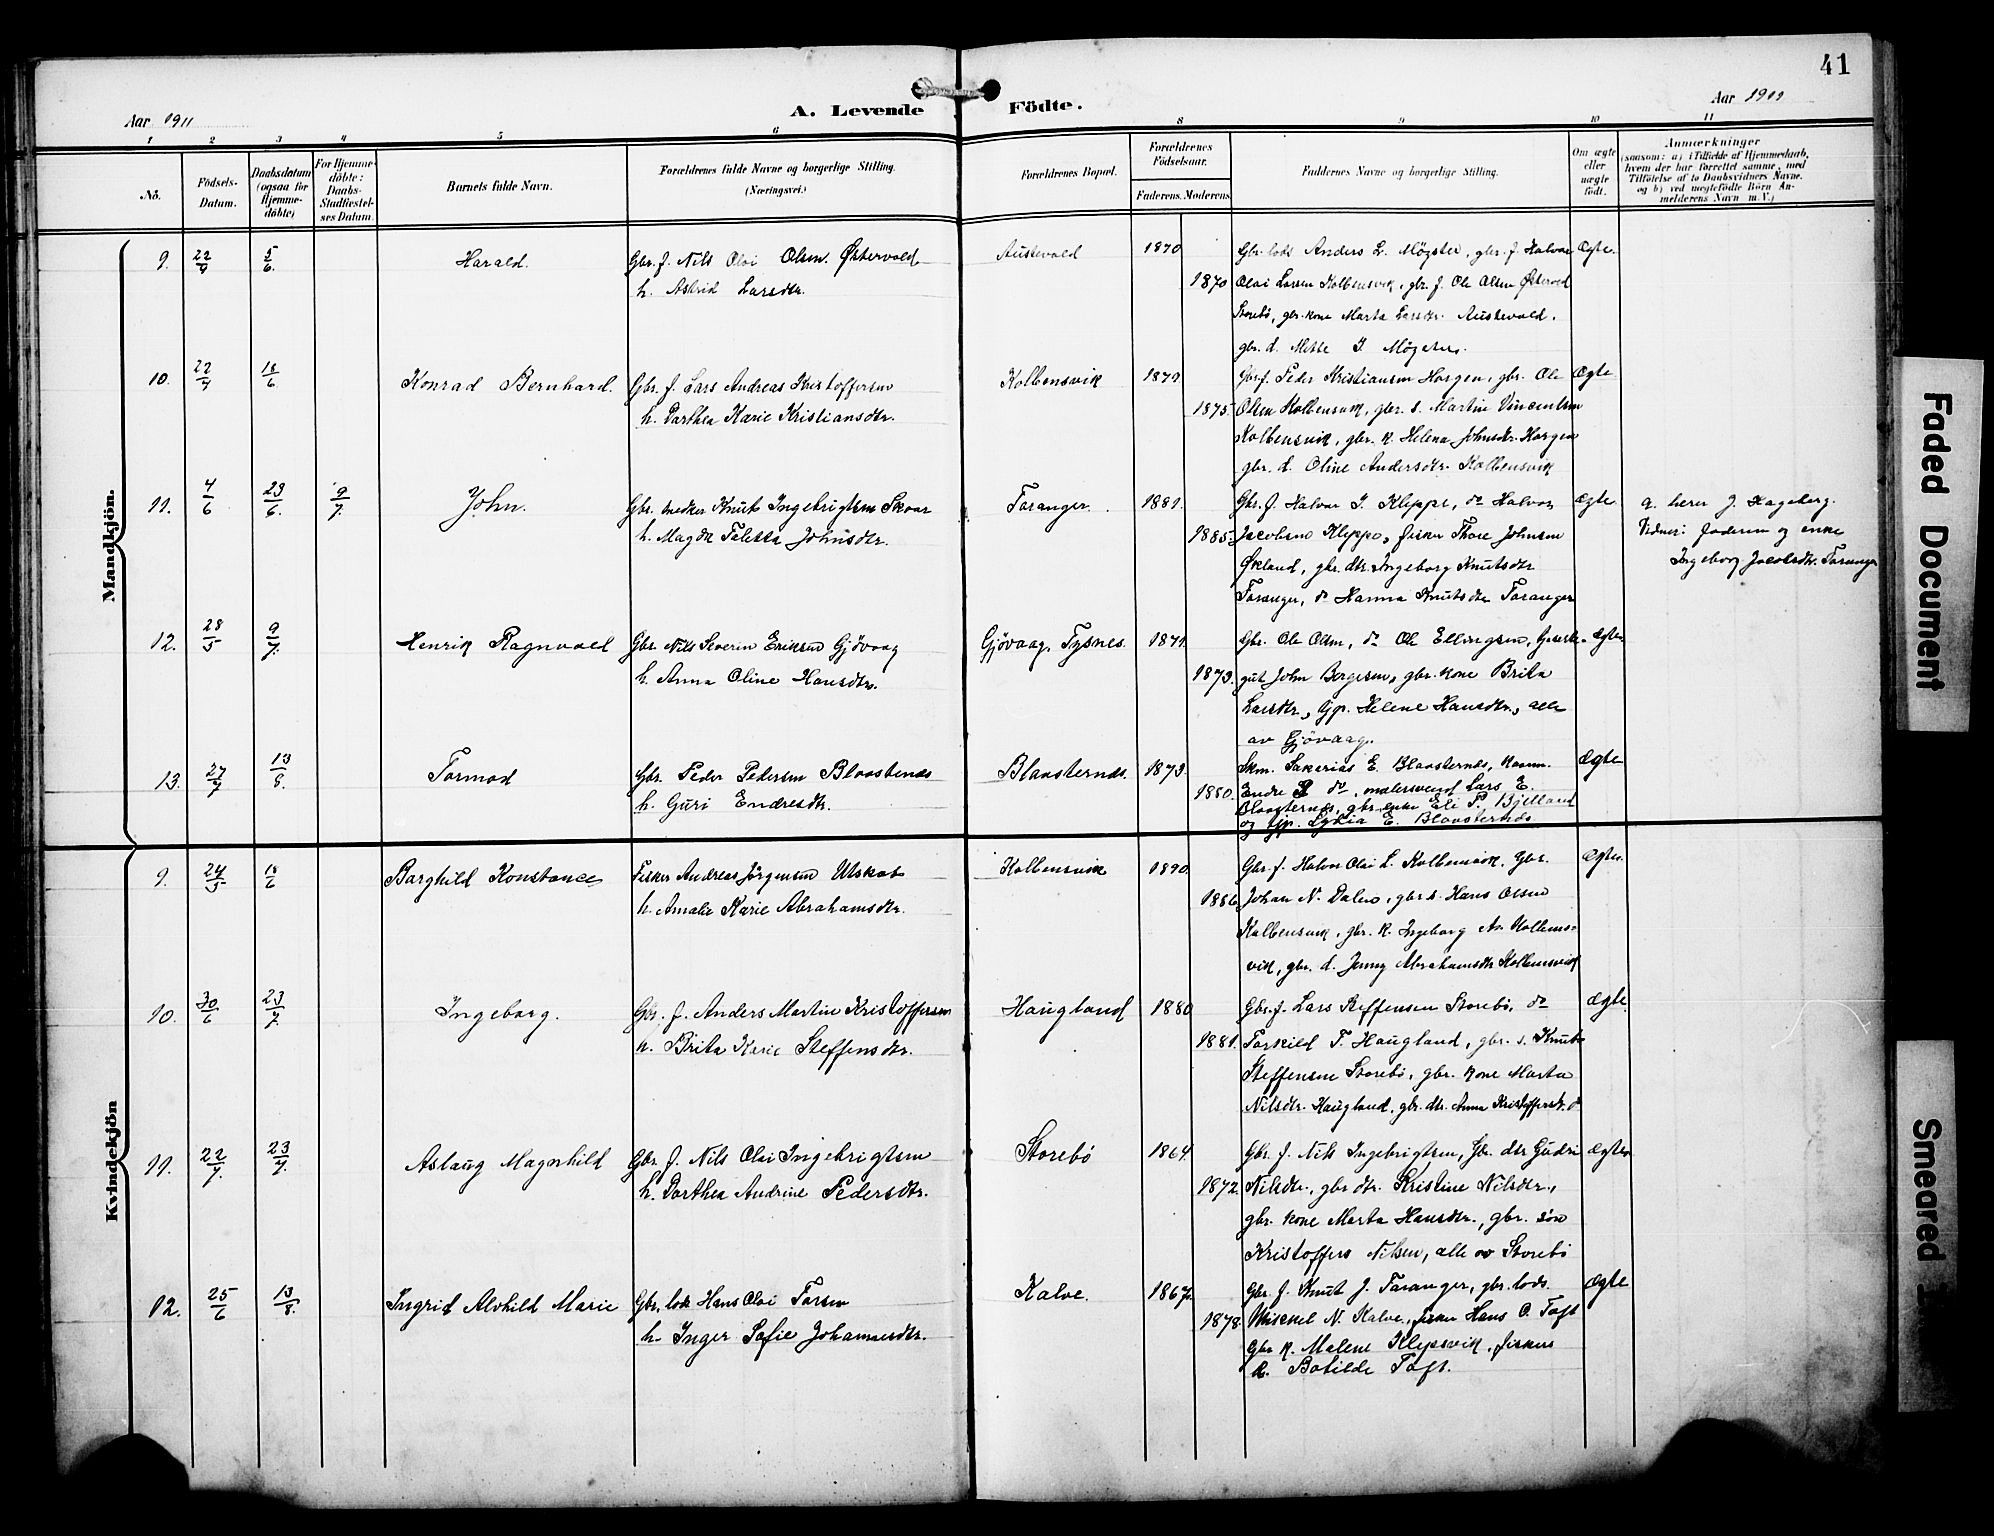 41
Aar 1911
A. Levende Födte.
Aar 1911
1 2 3 4 5 6 8 9 10 11
No.
Födsels-Datum.
Daabsdatum (ogsaa for Hjemmedöbte)
For Hjemmedöbte: Daabs-Stadfæstelses Datum.
Barnets fulde Navn.
Forældrenes fulde Navne og borgerlige Stilling. (Næringsvei.)
Forældrenes Bopæl.
Forældrenes Födselsaar.
Faderens. Moderens.
Faddernes Navne og borgerlige Stilling.
Om ægte eller uægte födt.
Anmærkninger
(saasom: a) i Tilfælde af Hjemmedaab, hvem der har forrettet samme, med Tilföielse af to Daabsvidners Navne, og b) ved uægtefödte Börn Anmelderens Navn m. V.)
Mandkjön.
9. 22/4 5/6. Harald. Gbr. f. Nils Olai Olsen Østervold Austevold 1870 Gbr. lods Anders L. Møgster, gbr. f. Halvor Ægte.
h. Astrid Larsdtr. 1870 Olai Larsen Kolbensvik, gbr. f. Ole Olsen Østervold
Storebö, gbr. kone Marta Larsdtr. Austevold,
gbr. d. Mette I. Møgster.
10. 22/4 18/6 Konrad Bernhard. Gbr. f. Lars Andreas Kristoffersen Kolbensvik 1871 Gbr. f. Peder Kristiansen Horgen, gbr. Ole Ægte
h. Dorthea Karie Kristiansdtr. 1875. Olsen Kolbensvik, gbr. s. Martin Vincentsen
Kolbensvik, gbr. k. Helena Johnsdtr. Horgen
gbr. d. Oline Andersdtr. Kolbensvik
11. 4/6 23/6. 9/7. John. Gbr. snedker Knut Ingebrigtsen Skaar Toranger. 1881. Gbr. f. Halvor I. Kleppe, do Halvor ægte a. lærer J. Hageberg.
h. Magdl. Taletta Johnsdtr. 1885. Jacobsen Kleppe, fisker Thore Johnsen Vidner: faderen og enke
Økland, gbr. dtr. Ingeborg Knutsdtr Ingeborg Jacobsdtr. Toranger
Toranger, do Hanna Knutsdtr Toranger
12. 28/5 9/7. Henrik Ragnvald Gbr. Nils Severin Eriksen Gjövaag Gjövaag, Tysnes. 1871. Gbr. Ole Olsen, do Ole Ellingsen, Ægte
h. Anna Oline Hansdtr. 1873. gut John Borgesen, gbr. kone Brita
Larsdtr., tjp. Helene Hansdtr., alle
av Gjövaag.
13. 27/7 13/8. Tormod Gbr. Peder Pedersen Blaasternes Blaasternes. 1873. Skm. Sakarias E. Blaasternes, Ægte
h. Guri Endresdtr. 1880. Endre do, malersvend Lars E.
Blaasternes, gbr. enke Eli P. Bjelland
og tjp. Lydia E. Blaasternes
Kvindekjön
9. 24/5 18/6 Borghild Konstance Fisker Andreas Jörgensen Utskot Kolbensvik 1890. Gbr. f. Halvor Olai L. Kolbensvik, Gbr. Ægte.
h. Amalie Karie Abrahamsdtr. 1886. Johan N. Dalen, gbr s. Hans Olsen
Kolbensvik, gbr. k. Ingeborg A. Kolbens-
vik, gbr. d. Jenny Abrahamsdtr Kolbensvik
10. 30/6 23/7. Ingeborg. Gbr. f. Anders Martin Kristoffersen Haugland 1880 Gbr. f. Lars Steffensen Storebö, do Ægte.
h. Brita Karie Steffensdtr. 1881. Torkild T. Haugland, gbr. s. Knut
Steffensen Storebö, gbr. kone Marta
Nilsdtr. Haugland, gbr. dtr. Anna Kristoffersdtr. do
11. 22/7. 23/7. Aslaug Magnhild Gbr. f. Nils Olai Ingebrigtsen Storebö 1864. Gbr. f. Nils Ingebrigtsen, Gbr. dtr Gudri Ægte
h. Dorthea Andrine Pedersdtr. 1872. Nilsdtr., gbr dtr. Kristine Nilsdtr.,
gbr. kone Marta Hansdtr., gbr. sön
Kristoffers Nilsen, alle av Storebö
12. 25/6 13/8. Ingrid Alvhild Marie Gbr. lods Hans Olai Torsen Kalve. 1867. Gbr. f. Knut J. Toranger, gbr. lods. Ægte
h. Inger Sofie Johannesdtr. 1878. Mickel N. Kalve, fisker Hans O. Toft
Gbr k. Malene Klepsvik, fiskers
k. Botilde Toft.
Faded Document
Smeared